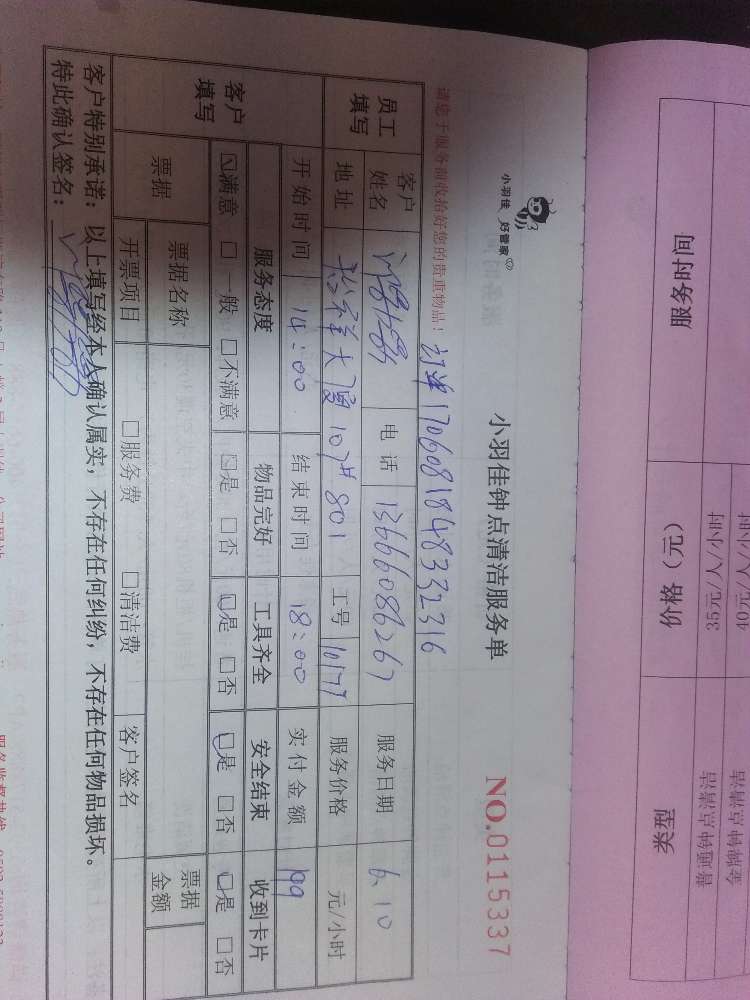 小羽佳 好管家
小羽佳钟点清洁服务单
NO.0115337
请您于服务前收拾好您的贵重物品！
订单17060818483323 16
员工填写 客户姓名 电话 13666086267 服务日期 6.10
地址 裕祥大厦107#801 工号 10177 服务价格 元/小时
开始时间 14:00 结束时间 18:00 实付金额 199
客户填写 服务态度 物品完好 工具齐全 安全结束 收到卡片
☑满意 □一般 □不满意 ☑是 □否 ☑是 □否 ☑是 □否 ☑是 □否
票据 票据名称 票据金额
开票项目 □服务费 □清洁费 客户签名
客户特别承诺：以上填写经本人确认属实，不存在任何纠纷，不存在任何物品损坏。
特此确认签名：
类型 价格（元） 服务时间
普通钟点清洁 35元/人/小时
40元/人/小时